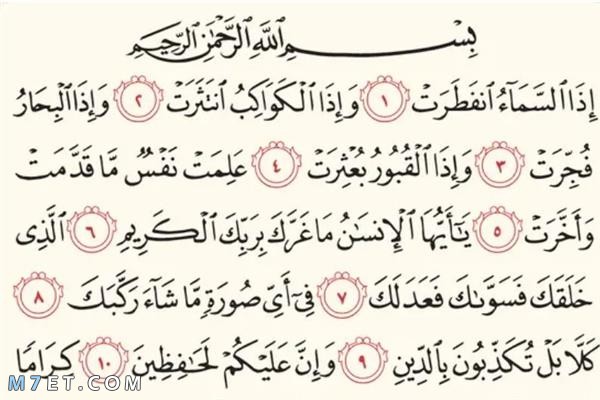 بِسْمِ ٱللَّهِ ٱلرَّحْمَٰنِ ٱلرَّحِيمِ
إِذَا ٱلسَّمَآءُ ٱنفَطَرَتْ ١ وَإِذَا ٱلْكَوَاكِبُ ٱنتَثَرَتْ ٢ وَإِذَا ٱلْبِحَارُ
فُجِّرَتْ ٣ وَإِذَا ٱلْقُبُورُ بُعْثِرَتْ ٤ عَلِمَتْ نَفْسٌ مَّا قَدَّمَتْ
وَأَخَّرَتْ ٥ يَٰٓأَيُّهَا ٱلْإِنسَٰنُ مَا غَرَّكَ بِرَبِّكَ ٱلْكَرِيمِ ٦ ٱلَّذِى
خَلَقَكَ فَسَوَّىٰكَ فَعَدَلَكَ ٧ فِىٓ أَىِّ صُورَةٍ مَّا شَآءَ رَكَّبَكَ ٨
كَلَّا بَلْ تُكَذِّبُونَ بِٱلدِّينِ ٩ وَإِنَّ عَلَيْكُمْ لَحَٰفِظِينَ ١٠ كِرَامًا
M7ET.COM